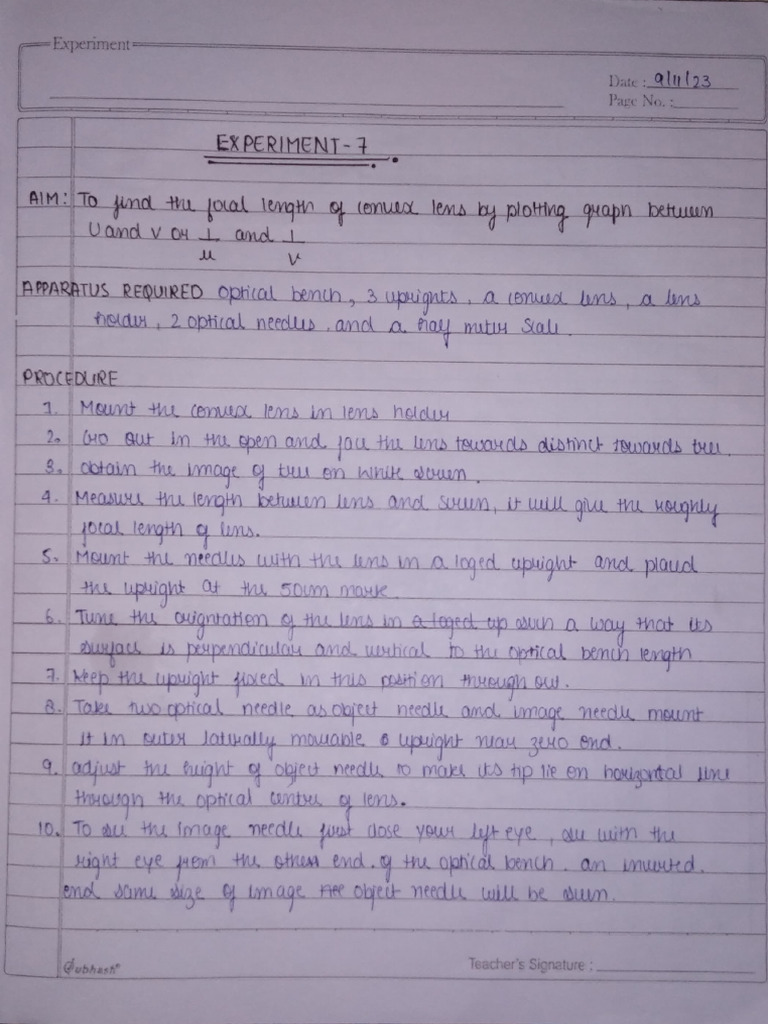 Experiment
Date : 9/11/23
Page No. :
EXPERIMENT-7
AIM: To find the focal length of convex lens by plotting graph between
U and V or 1/u and 1/v
APPARATUS REQUIRED Optical bench, 3 uprights, a convex lens, a lens
holder, 2 optical needles. and a half meter Scale.
PROCEDURE
1. Mount the convex lens in lens holder
2. Go out in the open and face the lens towards distinct towards tree.
3. obtain the image of tree on white screen.
4. Measure the length between lens and screen, it will give the roughly
focal length of lens.
5. Mount the needles with the lens in a loged upright and placed
the upright at the 50cm mark
6. Tune the of the lens in a loged up such a way that its
surface is perpendicular and vertical to the optical bench length
7. Keep the upright fixed in this position through out.
8. Take two optical needle as object needle and image needle mount
it in outer laterally movable upright near zero end.
9. adjust the height of object needle to make its tip lie on horizontal line
through the optical centre of lens.
10. To see the image needle first close your left eye, see with the
right eye from the other end. of the optical bench. an inverted.
end same size of image object needle will be seen.
Teacher's Signature :